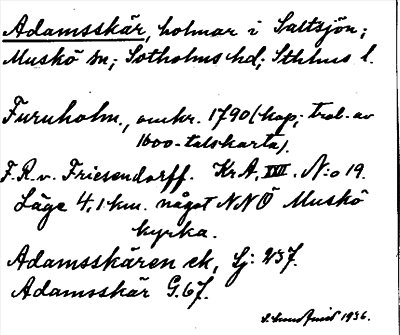 Adamsskär, holmar i Saltsjön;
Muskö sn; Sotholms hd; Sthlms l.
Furuholm, omkr. 1790 (kop; trol. av
1600-talskarta).
F.R.v. Friesendorff. Kr.A. XXIII. N:o 19.
Läge 4,1 km. något NNÖ Muskö
kyrka.
Adamsskären ek, Sj: 237.
Adamsskär G.67.
1936.